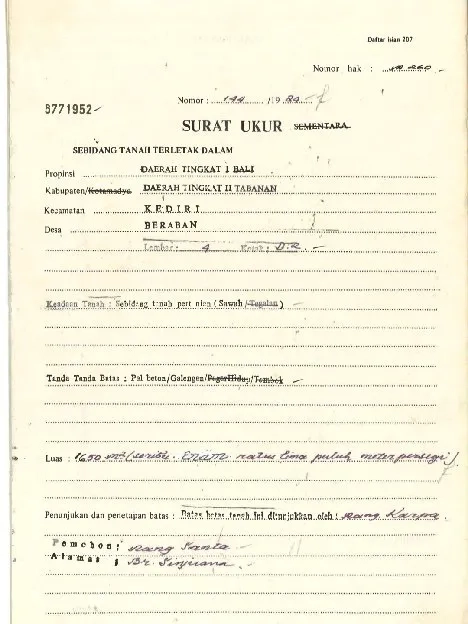 Daftar Isian 207
Nomor hak : 260 -
Nomor : 144 /19 84 -
8771952 -
SURAT UKUR SEMENTARA
SEBIDANG TANAH TERLETAK DALAM
Propinsi DAERAH TINGKAT I BALI
Kabupaten/Kotamadya DAERAH TINGKAT II TABANAN
Kecamatan KEDIRI
Desa BERABAN
Lembar: 4 Kotak: D.2. -
Keadaan Tanah : Sebidang tanah pertanian (Sawah/Tegalan) -
Tanda Tanda Batas : Pal beton/Galengan/Pagar Hidup/Tembok -
Luas : 1650 m2 (seribu Enam ratus lima puluh meter persegi)
Penunjukan dan penetapan batas : Batas batas tanah ini ditunjukkan oleh :
Pemohon :
Alamat : Br.